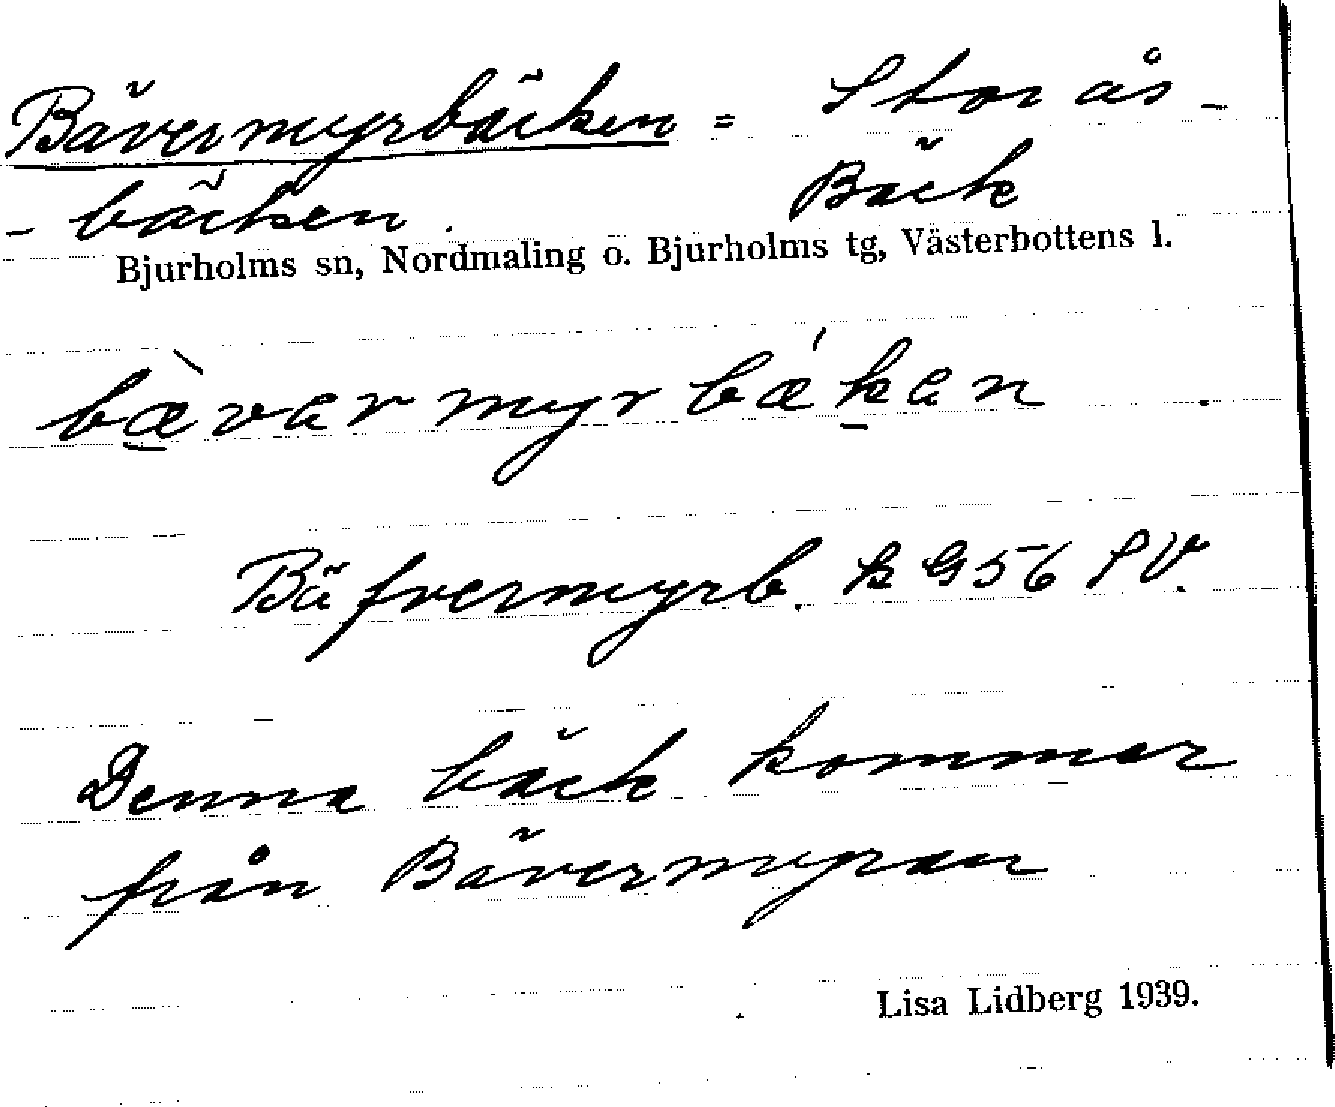 Bävermyrbäcken = Storås-
-bäcken. Bäck
Bjurholms sn, Nordmaling o. Bjurholms tg, Västerbottens l.
bæ̀vermyrbǽken
Bäfvermyrb. k G56 SV.
Denna bäck kommer
från Bävermyran
Lisa Lidberg 1939.